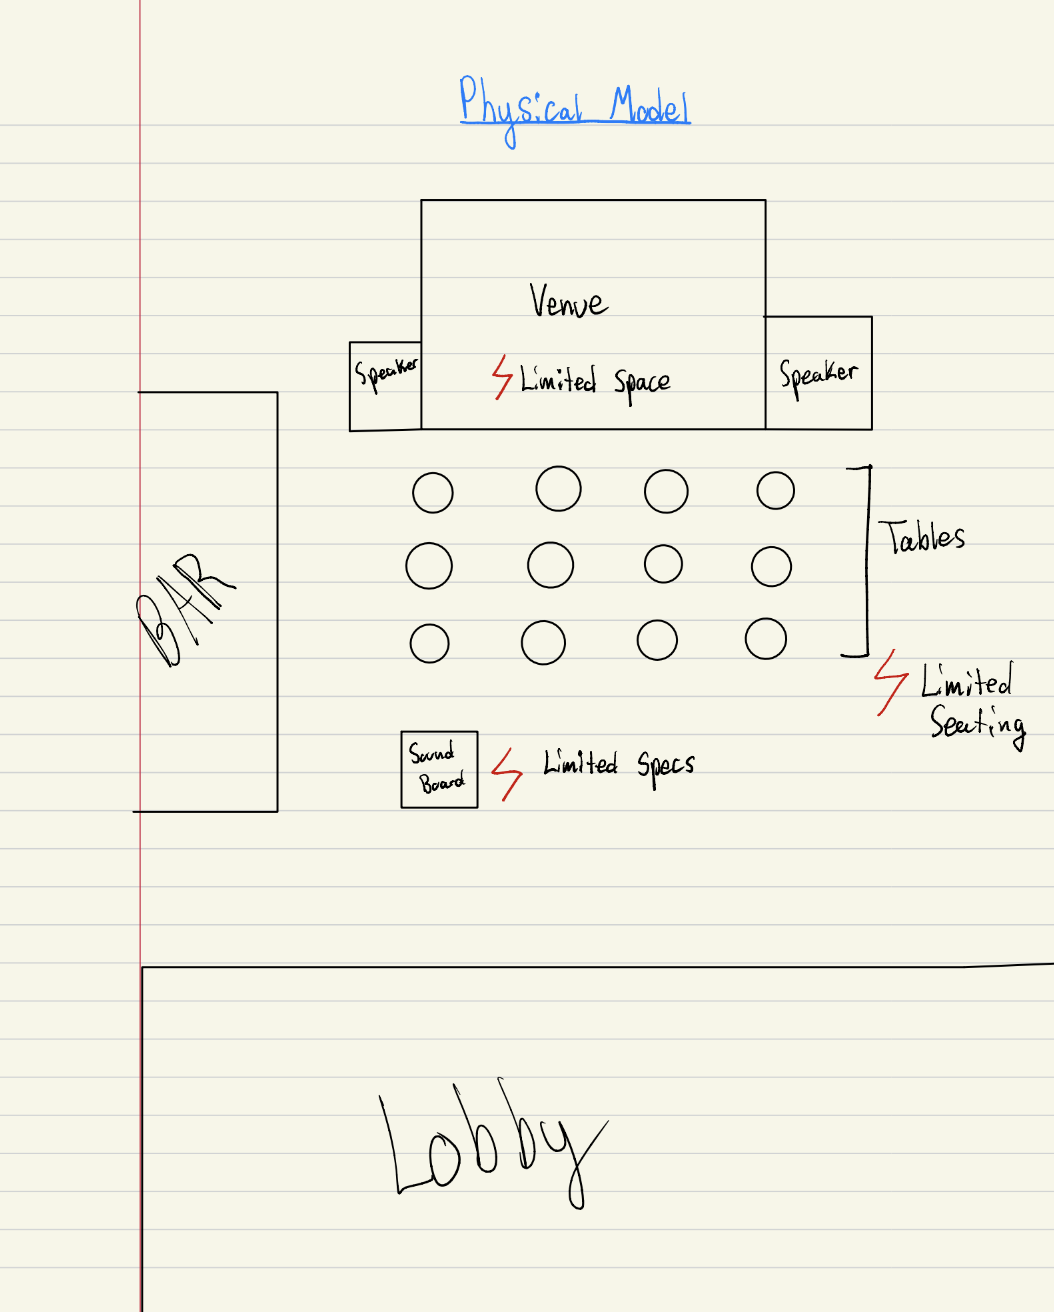 Physical Model
Venue
Speaker
Limited Space
Speaker
Tables
BAR
Limited
Seating
Sound
Board
Limited Specs
Lobby